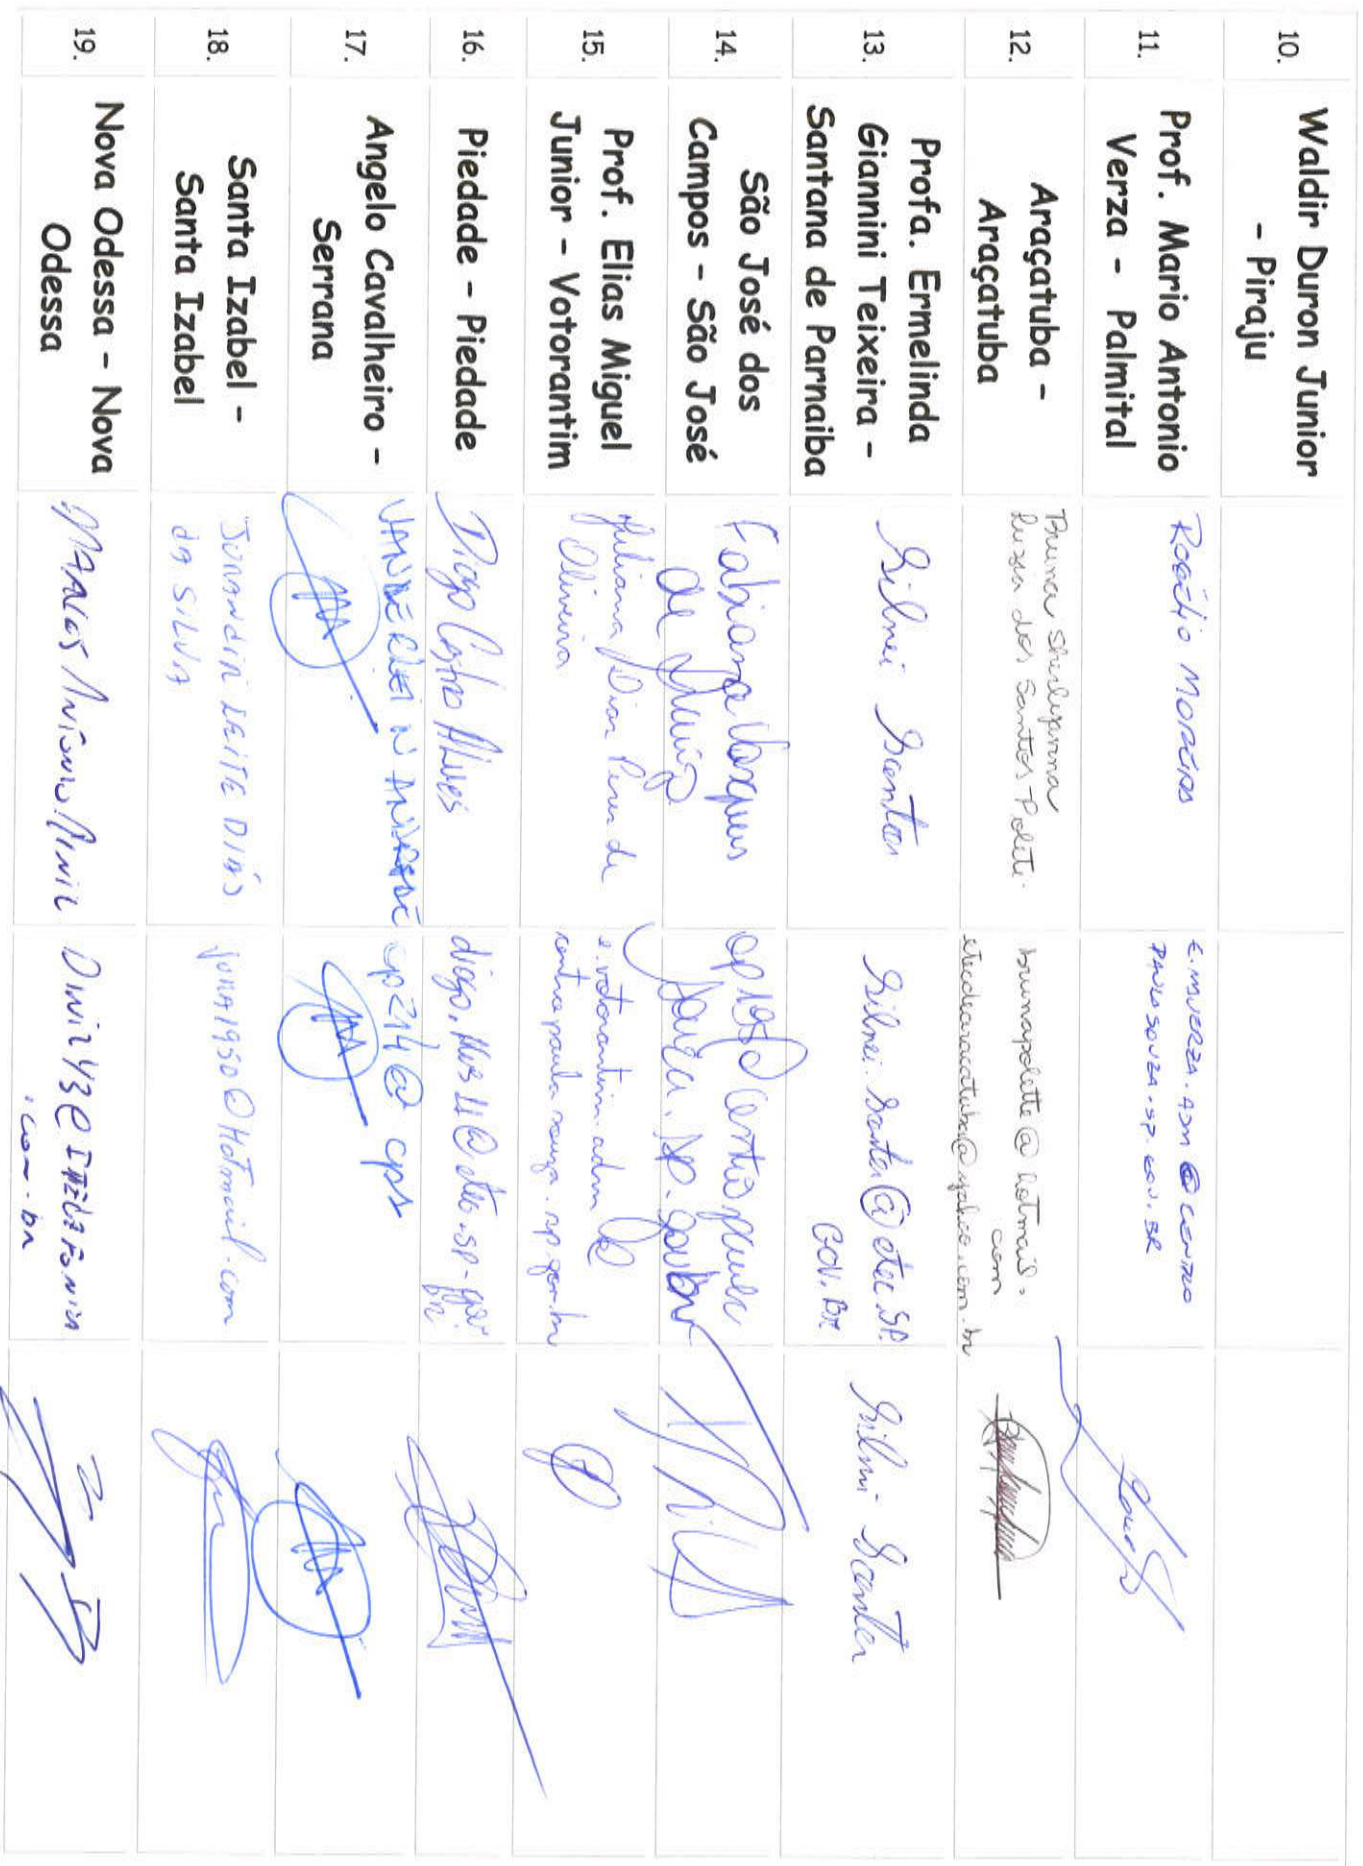 10.
Waldir Duron Junior
- Piraju
11.
Prof. Mario Antonio
Verza - Palmital
Rogério Moreira
E.MVERZA.ADM@CENTRO
PAULASOUZA.SP.GOV.BR
12.
Araçatuba -
Araçatuba
Bruna
Luzia dos Santos Polete.
brunapolette@hotmail.
com
etecdearacatuba@yahoo.com.br
13.
Profa. Ermelinda
Giannini Teixeira -
Santana de Parnaiba
Silnei Santos
Silnei.Santos@etec.SP.
GOV.Br
Silnei Santos
14.
São José dos
Campos - São José
Fabiana
de
Centro paula
Souza.sp.gov.br
15.
Prof. Elias Miguel
Junior - Votorantim
Juliana Dias Pires de
Oliveira
e.votorantim.adm@
centropaulasouza.sp.gov.br
16.
Piedade - Piedade
Diogo Castro Alves
@etec.sp.gov
br
17.
Angelo Cavalheiro -
Serrana
VANDERLEI N ANDRADE
op214@cps
18.
Santa Izabel -
Santa Izabel
JURANDIR LEITE DIAS
DA SILVA
jura1950@Hotmail.com
19.
Nova Odessa - Nova
Odessa
.com.br